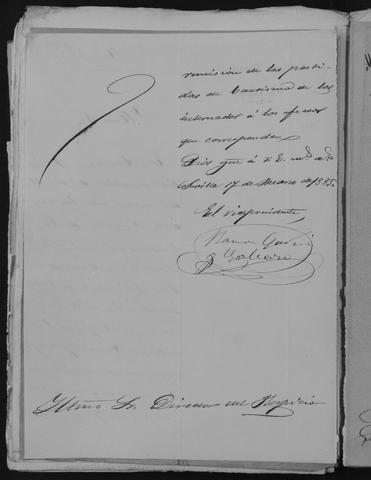 remision de las parti-
das de bautismo de los
interesados á los efectos
que correspondan
Dios gue á V. E. ms. as.
Sevilla 17 de Marzo de 1885.
El vicepresidente,
Ramon
y
Iltmo Sr. Director del Hospicio